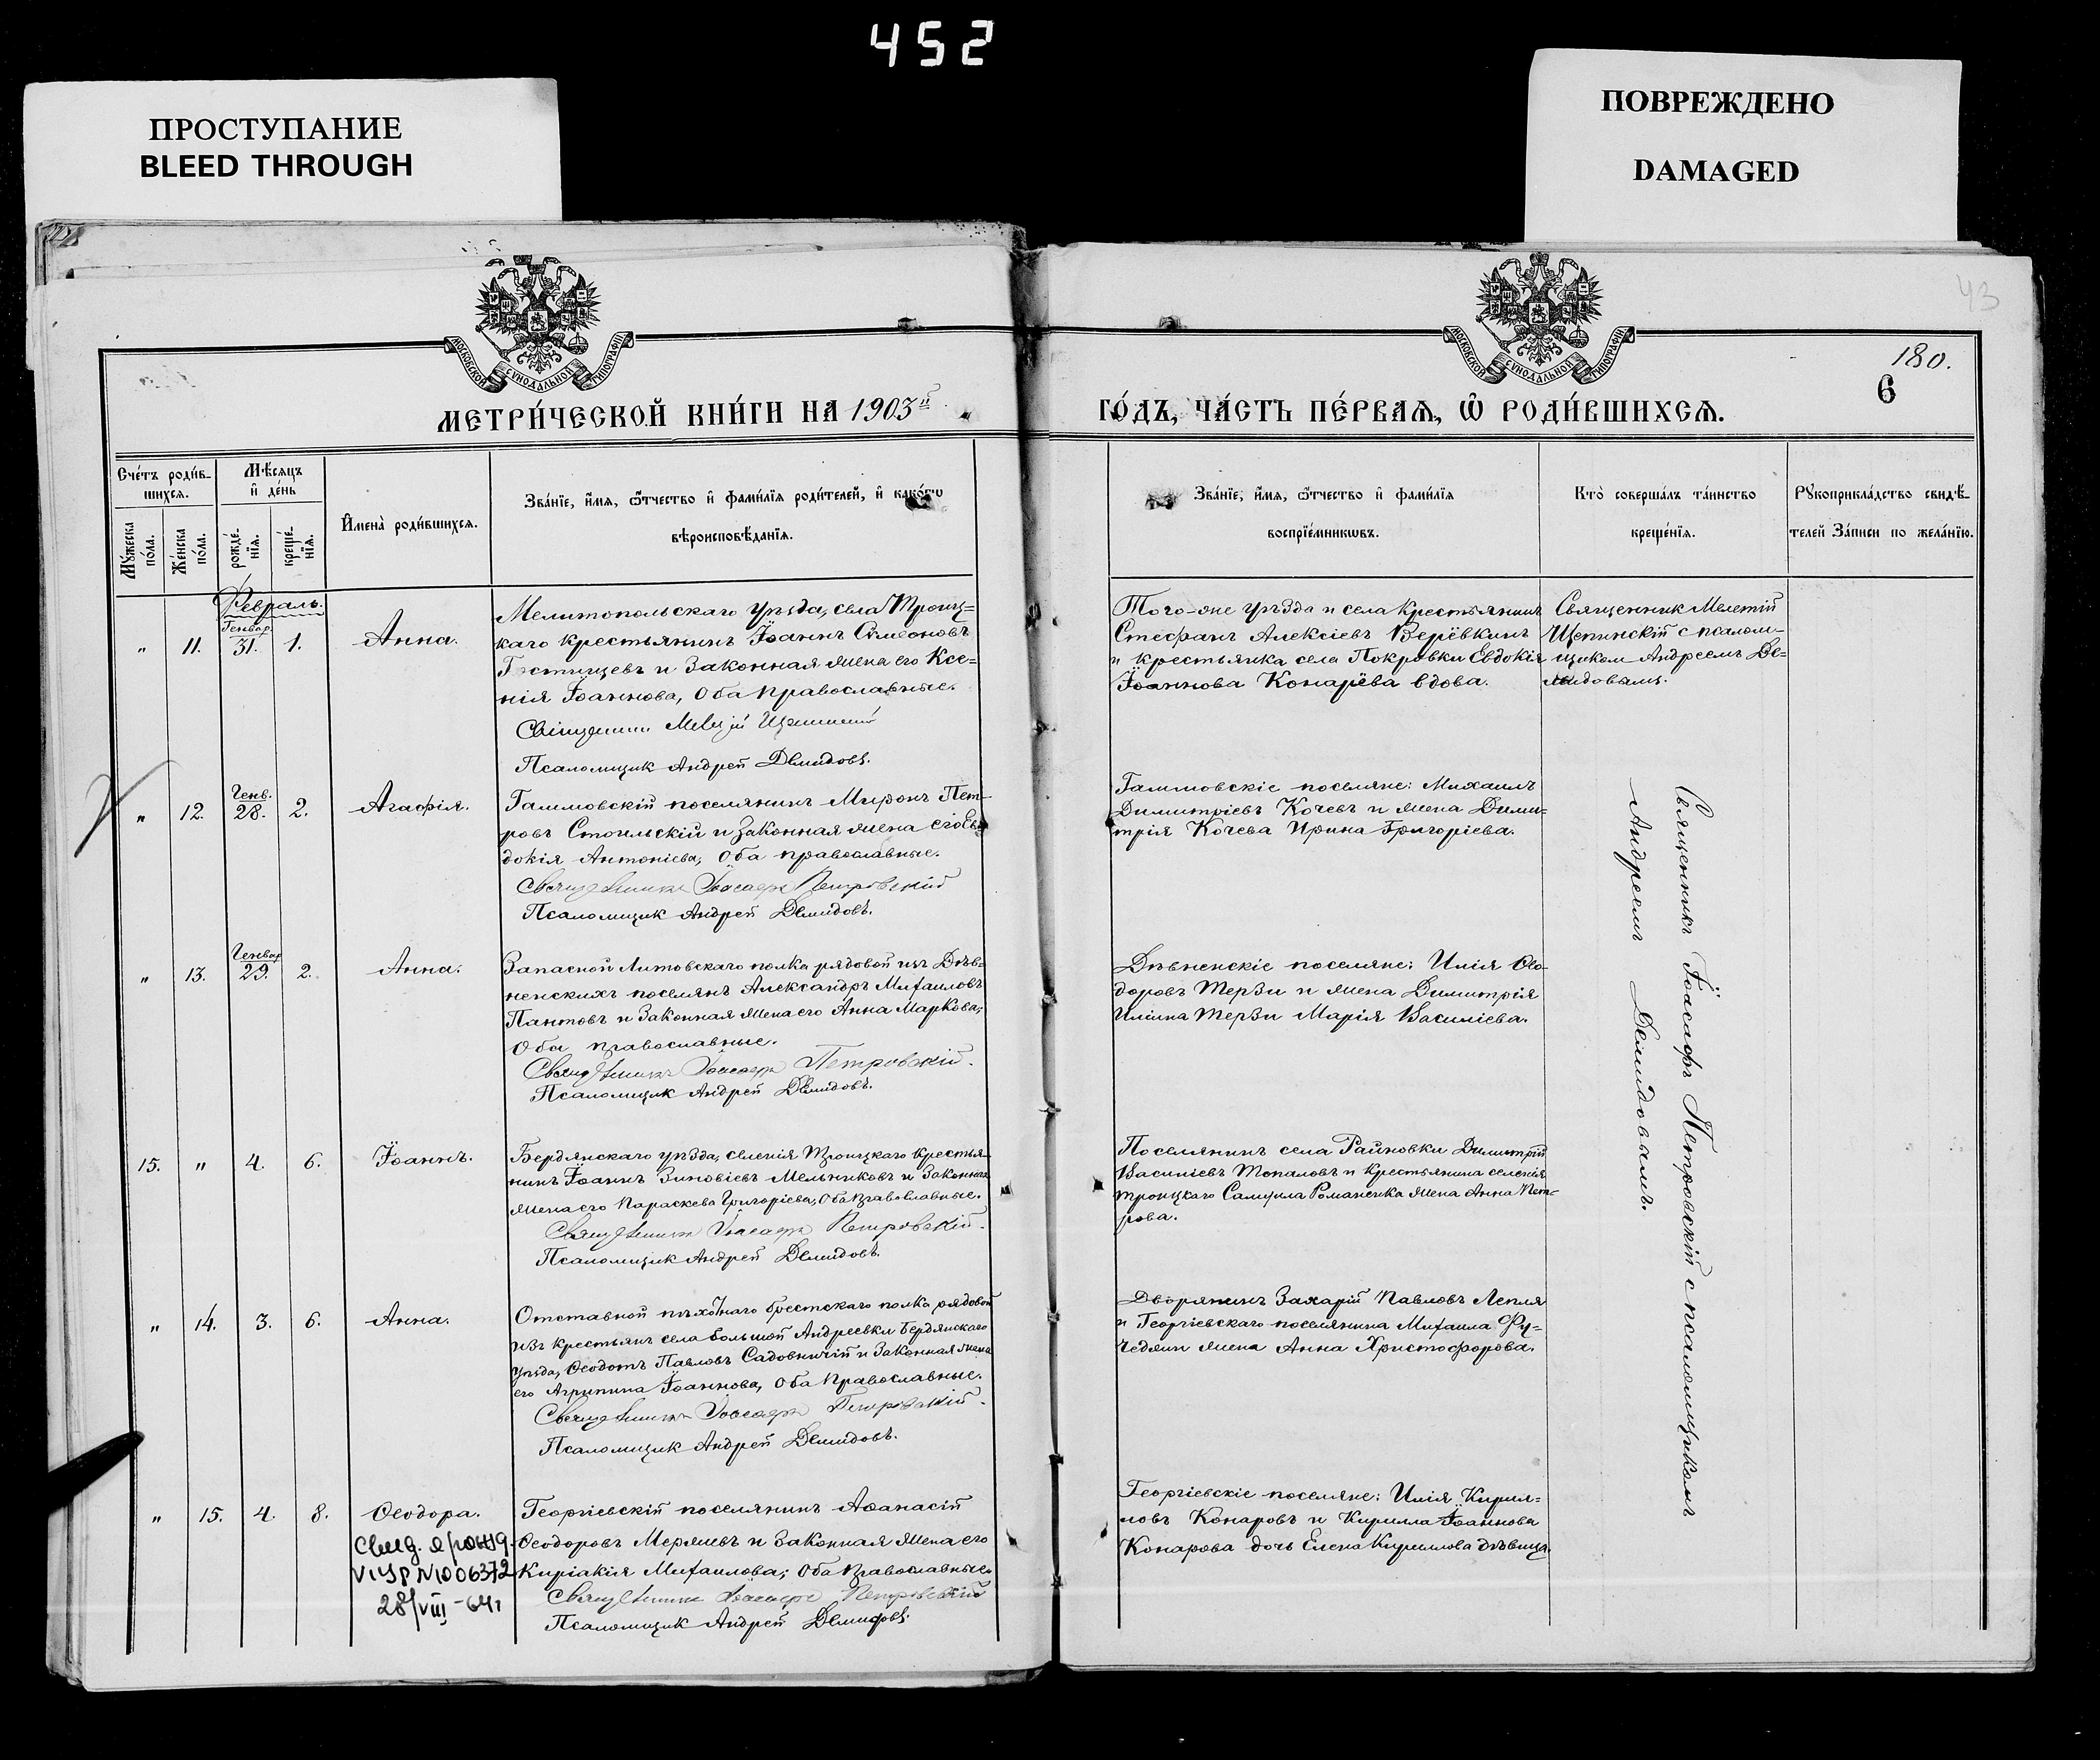 452
ПРОСТУПАНИЕ
BLEED THROUGH
ПОВРЕЖДЕНО
DAMAGED
43
МОСКОВСКОЙ СѴНОДАЛЬНОЙ ТИПОГРАФІИ
МОСКОВСКОЙ СѴНОДАЛЬНОЙ ТИПОГРАФІИ
180.
6
МЕТРИ́ЧЕСКОЙ КНИ́ГИ НА 1903й
ГО́ДЪ, ЧА́СТЬ ПЕ́РВАѦ, Ѡ҆ РОДИ́ВШИХСѦ.
Сче́тъ роди́в-
шихсѧ.
Мѣ́сяцъ
и҆ де́нь
Мꙋ́жеска
по́ла.
Же́нска
по́ла.
рожде́-
нїѧ.
креще́-
нїѧ.
И҆мена̀ роди́вшихсѧ.
Зва́нїе, и҆́мѧ, ѻ҆́тчество и҆ фами́лїѧ роди́телей, и҆ како́гѡ
вѣроисповѣ́данїѧ.
Зва́нїе, и҆́мѧ, ѻ҆́тчество и҆ фами́лїѧ
воспрїе́мникѡвъ.
Кто̀ соверша́лъ та́инство
креще́нїѧ.
Рꙋкоприкла́дство свидѣ́-
телей За́писи по жела́нїю.
Февраль.
" 11. Генвар. 31. 1. Анна.
Мелитопольскаго уѣзда, села Троиц=
каго крестьянинъ Іоаннъ Симеоновъ
Гостищевъ и законная жена его Ксе=
нія Іоаннова, оба православные.
Священникъ Мелетій Щепинскій
Псаломщик Андрей Демидовъ.
Того-же уѣзда и села крестьянинъ
Стефанъ Алексіевъ Верёвкинъ
и крестьянка села Покровки Евдокія
Іоаннова Конарёва вдова.
Священник Мелетій
Щепинскій с псалом-
щиком Андреемъ Де=
мидовымъ.
" 12. Генв. 28. 2. Агафія.
Гаммовскій поселянинъ Миронъ Пет-
ровъ Стогльскій и законная жена его Ев-
докія Антоніева, оба православные.
Священникъ Іоасафъ Петровскій
Псаломщик Андрей Демидовъ.
Гаммовскіе поселяне: Михаилъ
Димитріевъ Кочевъ и жена Дими-
трія Кочева Ирина Григоріева.
Священникъ Іоасафъ Петровскій с псаломщикомъ
Андреемъ Демидовымъ.
" 13. Генвар 29. 2. Анна.
Запасной Литовскаго полка рядовой изъ Дѣв-
ненскихъ поселянъ Александръ Михаиловъ
Пантовъ и законная жена его Анна Маркова;
оба православные.
Священникъ Іоасафъ Петровскій.
Псаломщик Андрей Демидовъ.
Дѣвненскіе поселяне: Илія Ѳео-
доровъ Терзи и жена Димитрія
Иліина Терзи Марія Василіева.
15. " 4. 6. Іоаннъ.
Бердянскаго уѣзда, селенія Троицкаго крестья-
нинъ Іоаннъ Зиновіевъ Мельниковъ и законная
жена его Параскева Григоріева, оба православные.
Священникъ Іоасафъ Петровскій.
Псаломщик Андрей Демидовъ.
Поселянинъ села Райновки Димитрій
Василіевъ Топаловъ и крестьянина селенія
Троицкаго Самуила Романенка жена Анна Пет-
рова.
" 14. 3. 6. Анна.
Отставной пѣхотнаго Брестскаго полка рядовой
изъ крестьянъ села Большой Андреевки Бердянскаго
уѣзда, Ѳеодотъ Павловъ Садовничій и законная жена
его Агрипина Іоаннова, оба православные.
Священникъ Іоасафъ Петровскій.
Псаломщик Андрей Демидовъ.
Дворянинъ Захарій Павловъ Лепля
и Георгіевскаго поселянина Михаила Фу-
чеджи жена Анна Христофорова.
" 15. 4. 8. Ѳеодора.
Свид.
N1006372
28/VIII-64г
Георгіевскій поселянинъ Аѳанасій
Ѳеодоровъ Мержиевъ и законная жена его
Киріакія Михаилова; оба православные.
Священникъ Іоасафъ Петровскій
Псаломщик Андрей Демидовъ.
Георгіевскіе поселяне: Илія Кирил=
ловъ Конаровъ и Кирилла Іоаннова
Конарова дочь Елена Кириллова дѣвица.